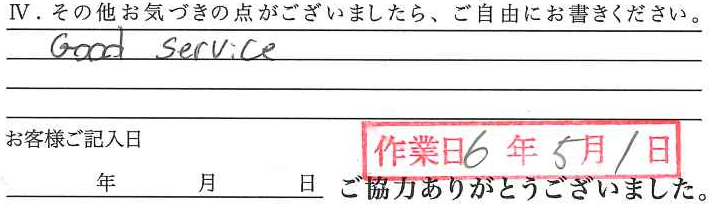 Ⅳ．その他お気づきの点がございましたら、ご自由にお書きください。
Good Service
お客様ご記入日
作業日6年5月1日
年 月 日
ご協力ありがとうございました。